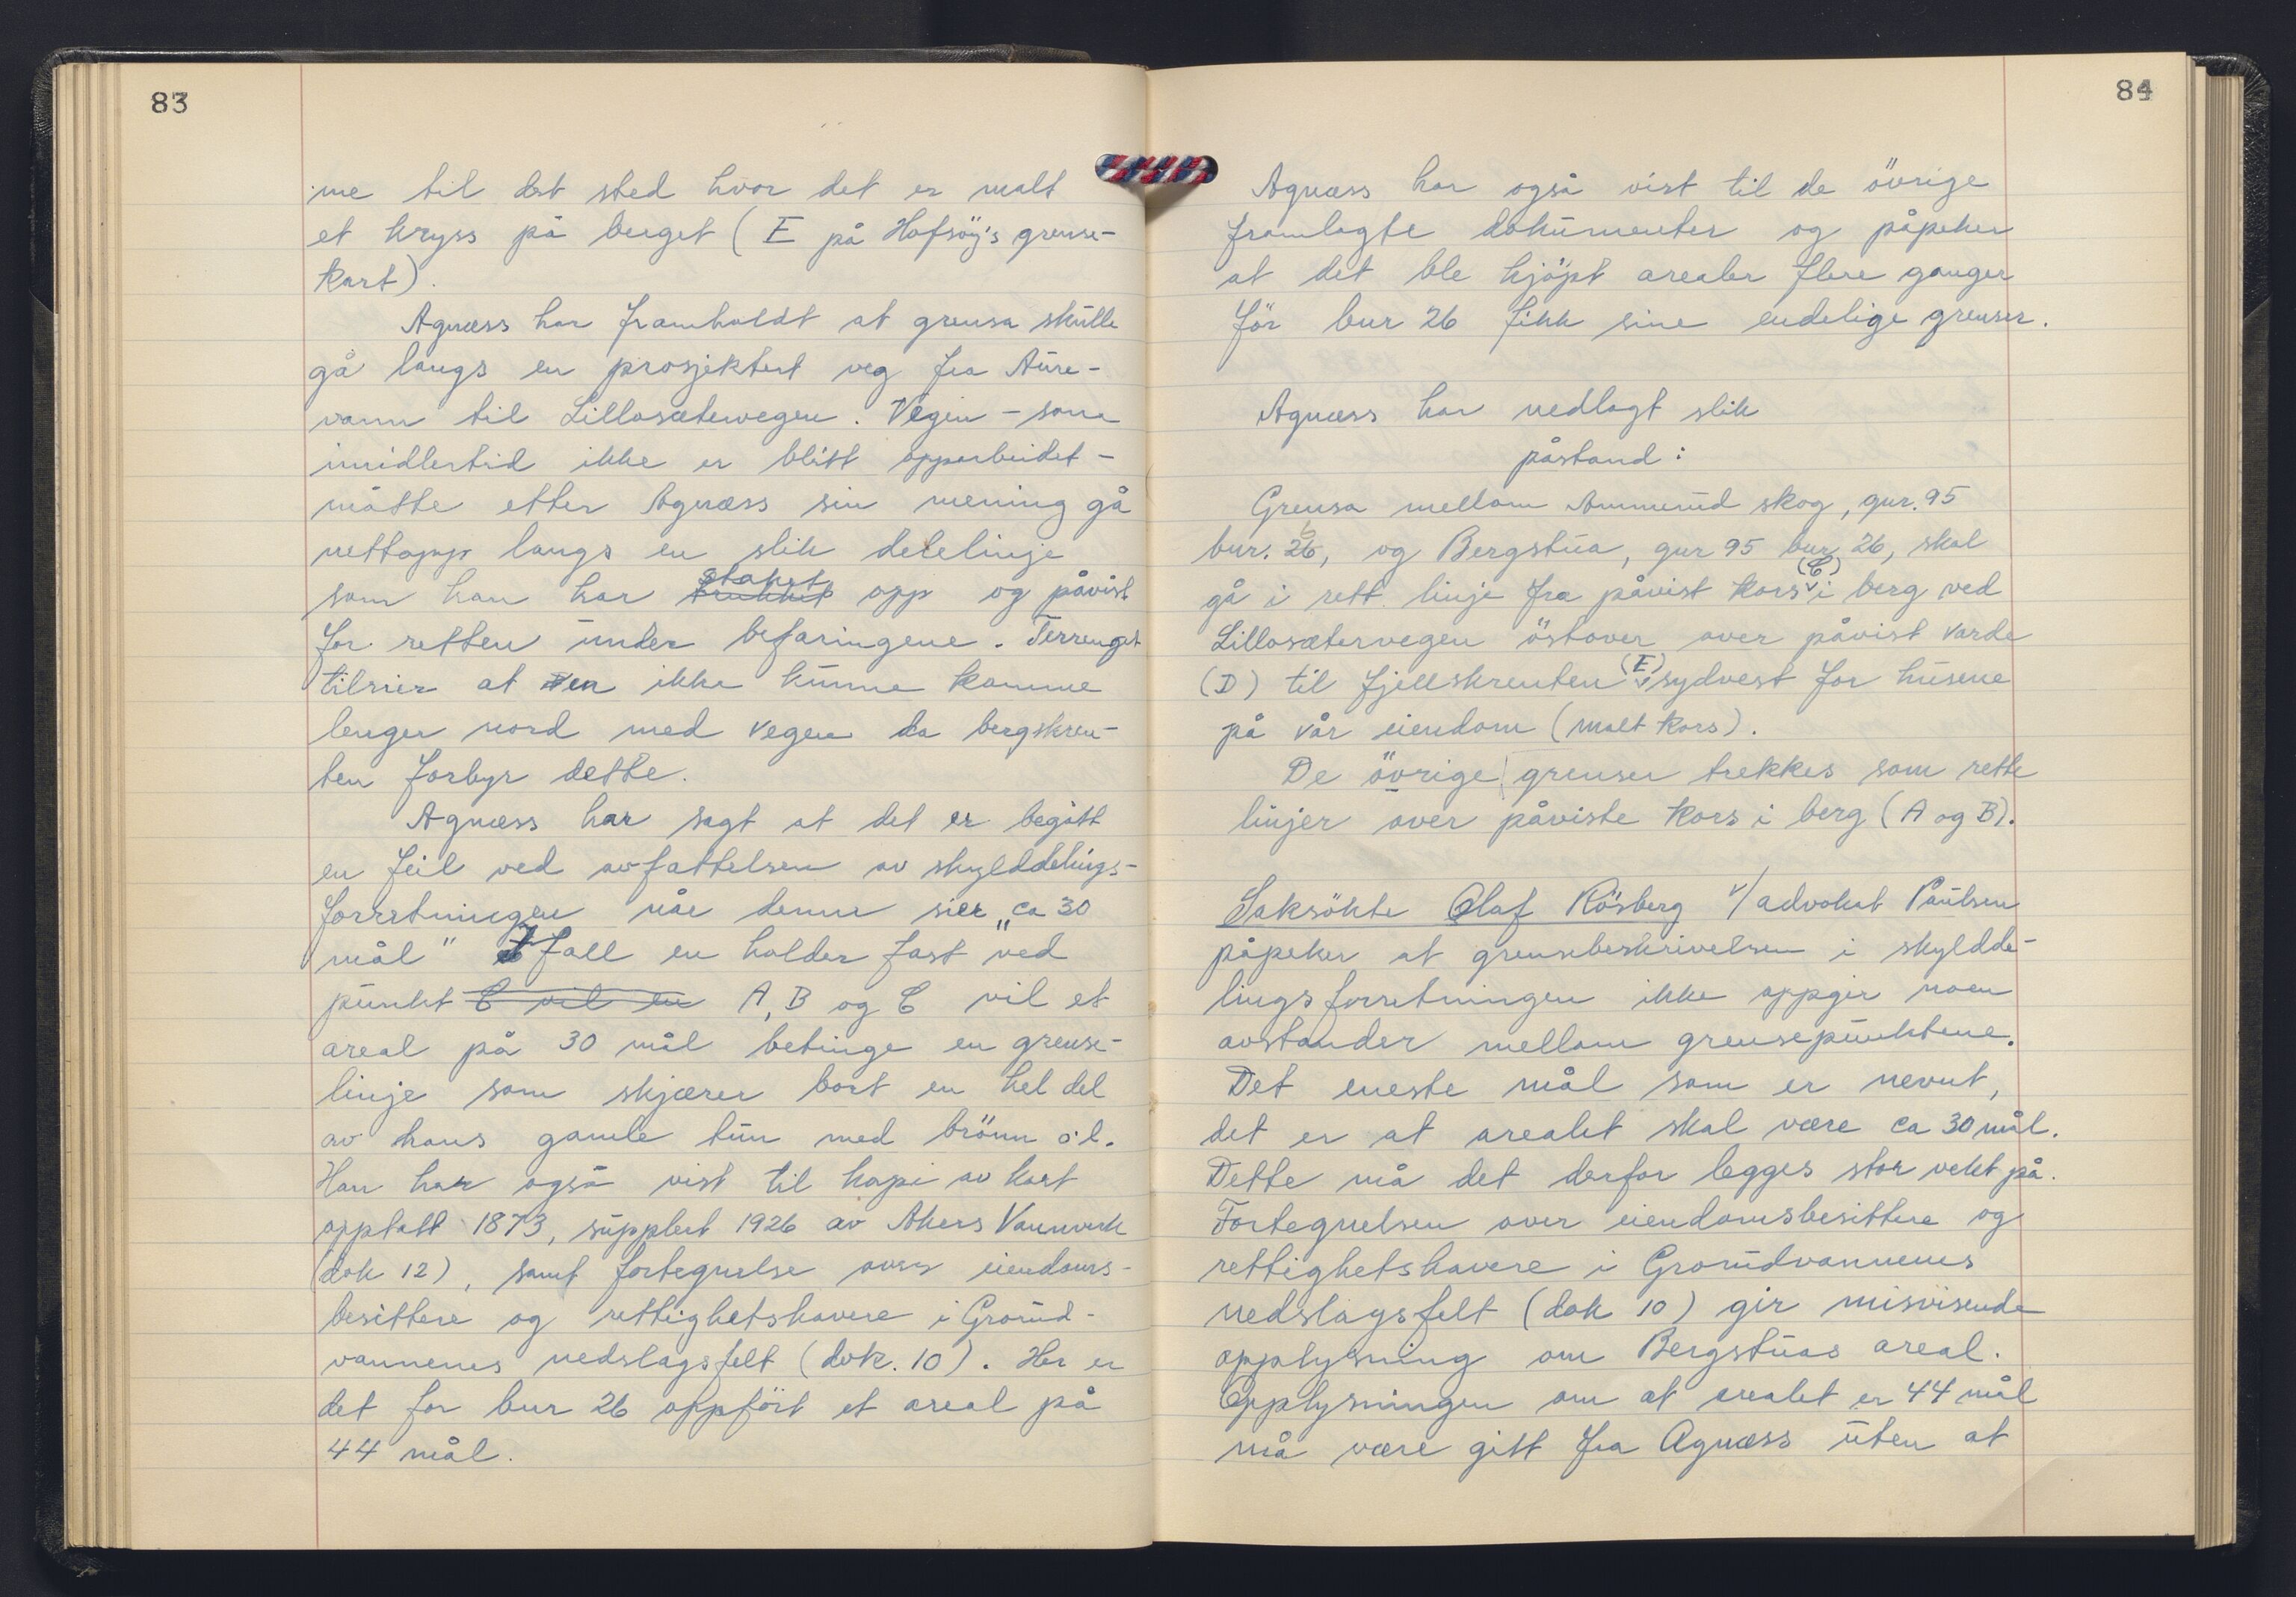 83
me til det sted hvor det er malt
et kryss på berget (E på Hofsöy's grense-
kart).
Agnæss har framholdt at grensa skulle
gå langs en prosjektert veg fra Aure-
vann til Lillosætervegen. Vegen – som
imidlertid ikke er blitt opparbeidet –
måtte etter Agnæss sin mening gå
nettopp langs en slik delelinje
som han har trukket stakst opp og påvist
for retten under befaringene. Terrenget
tilsier at en ikke kunne komme
lenger nord med vegen da bergskren-
ten forbyr dette.
Agnæss har sagt at det er begått
en feil ved avfattelsen av skylddelings-
forretningen når denne sier „ca 30
mål" I fall en holder fast ved
punkt C vil en A, B og C vil et
areal på 30 mål betinge en grense-
linje som skjærer bort en hel del
av hans gamle tun med brönn o.l.
Han har også vist til kopi av kart
opptatt 1873, supplert 1926 av Akers Vannverk
(dok 12), samt fortegnelse over eiendoms-
besittere og rettighetshavere i Grorud-
vannenes nedslagsfelt (dok. 10). Her er
det for bnr 26 oppfört et areal på
44 mål.
84
Agnæss har også vist til de övrige
framlagte dokumenter og påpeker
at det ble kjöpt arealer flere ganger
för bnr 26 fikk sine endelige grenser.
Agnæss har nedlagt slik
påstand:
Grensa mellom Ammerud skog, gnr. 95
bnr. 26, og Bergstua, gnr 95 bnr 26, skal
gå i rett linje fra påvist kors (C) i berg ved
Lillosætervegen östover over påvist varde
(D) til fjellskrenten (E) sydvest for husene
på vår eiendom (malt kors).
De övrige grenser trekkes som rette
linjer over påviste kors i berg (A og B).
Saksökte Olaf Rösberg v/ advokat Paulsen
påpeker at grensebeskrivelsen i skyldde-
lingsforretningen ikke oppgir noen
avstander mellom grensepunktene.
Det eneste mål som er nevnt,
det er at arealet skal være ca 30 mål.
Dette må det derfor legges stor vekt på.
Fortegnelsen over eiendomsbesittere og
rettighetshavere i Grorudvannenes
nedslagsfelt (dok 10) gir misvisende
opplysning om Bergstuas areal.
Opplysningen om at arealet er 44 mål
må være gitt fra Agnæss uten at